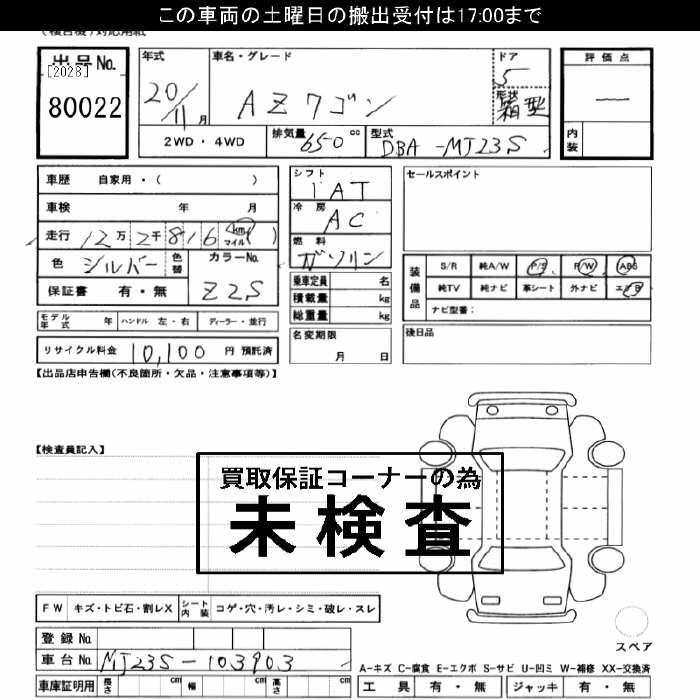 この車両の土曜日の搬出受付は17:00まで
(複合機)対応用紙
出品No. [2028] 80022
年式 20/11月
車名・グレード AZワゴン
ドア 5
形状 箱型
評価点 —
内装
2WD・4WD
排気量 650 cc
型式 DBA-MJ23S
車歴 自家用・( )
車検 年 月
走行 12万2千816 km マイル ( )
色 シルバー 色替
カラーNo. Z2S
保証書 有・無
シフト IAT
冷房 AC
燃料 ガソリン
乗車定員 名
積載量 kg
総重量 kg
名変期限 月 日
セールスポイント
装備品 S/R 純A/W P/S P/W ABS
純TV 純ナビ 革シート 外ナビ エアB
ナビ型番:
後日品
モデル年式 年 ハンドル 左・右 ディーラー・並行
リサイクル料金 10,100 円 預託済
【出品店申告欄(不良箇所・欠品・注意事項等)】
【検査員記入】
買取保証コーナーの為
未検査
FW キズ・トビ石・割レX シート内装 コゲ・穴・汚レ・シミ・破レ・スレ
スペア
登録No.
車台No. MJ23S-103903
A-キズ C-腐食 E-エクボ S-サビ U-凹ミ W-補修 XX-交換済
車庫証明用 長さ cm 幅 cm 高さ cm
工具 有・無 ジャッキ 有・無